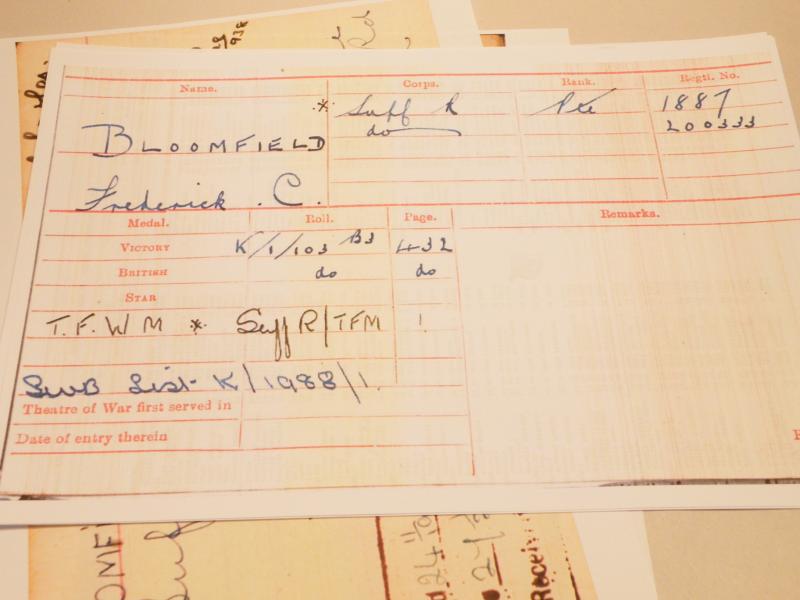 938
Name. Corps. Rank. Regtl. No.
* Suff R Pte 1887
do 200333
BLOOMFIELD
Frederick . C.
Medal. Roll. Page. Remarks.
VICTORY K/1/103 B3 432
BRITISH do do
STAR
T.F.W M * Suff R/TFM 1
SWB List K/1988/1.
Theatre of War first served in
Date of entry therein
OMFI
Suf
24
24/
Receiv